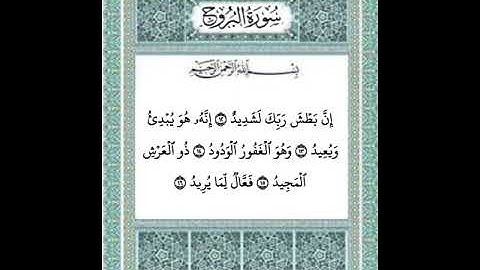 سُورَةُ البُرُوجِ
بِسْمِ اللَّهِ الرَّحْمَنِ الرَّحِيمِ
إِنَّ بَطْشَ رَبِّكَ لَشَدِيدٌ ۝١٢ إِنَّهُۥ هُوَ يُبْدِئُ
وَيُعِيدُ ۝١٣ وَهُوَ الْغَفُورُ الْوَدُودُ ۝١٤ ذُو الْعَرْشِ
الْمَجِيدُ ۝١٥ فَعَّالٌ لِّمَا يُرِيدُ ۝١٦